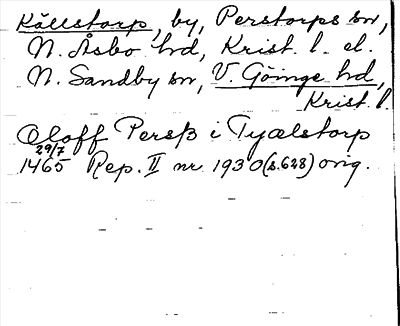 Källstorp, by, Perstorps sn,
N. Åsbo hd, Krist. l. el.
N. Sandby sn, V. Göinge hd,
Krist. l.
Oloff Persß i Tyælstorp
29/7
1465 Rep. II nr 1930 (s. 628) orig.